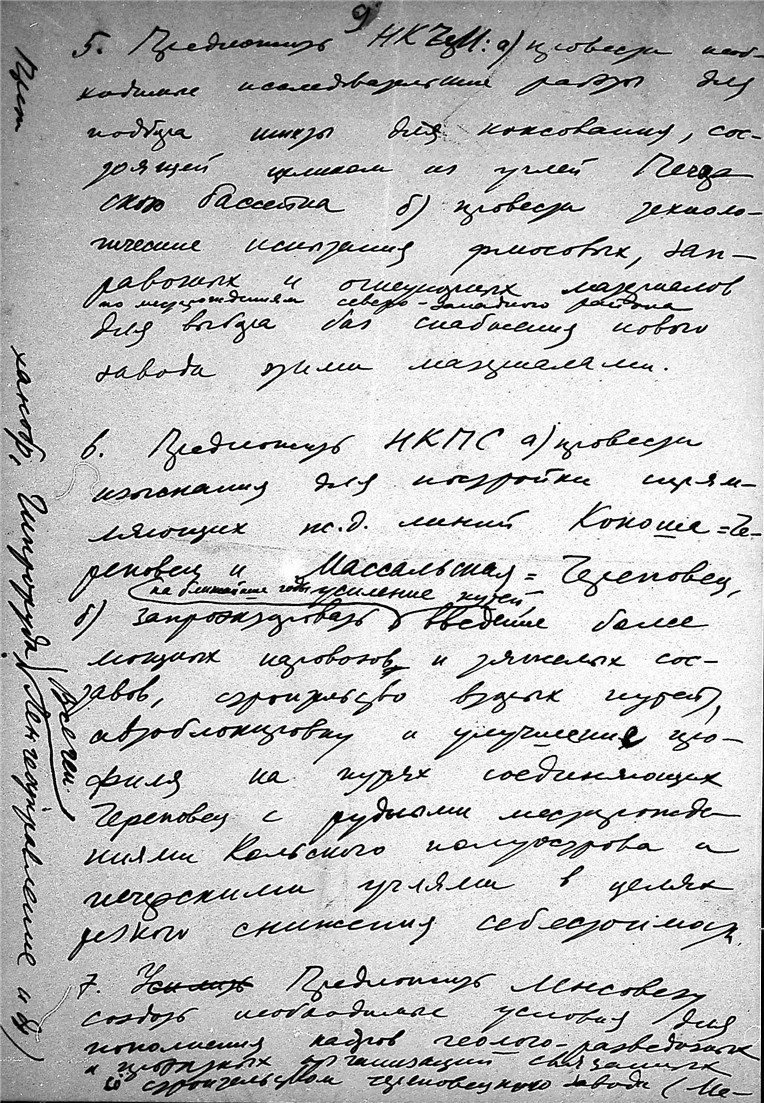 9
5. Предложить НКЧМ: а) провести необ-
ходимые исследовательские работы для
подбора шихты для коксования, сос-
тоящей целиком из углей Печор
ского бассейна б) провести техноло-
гические испытания флюсовых, зап-
равочных и огнеупорных материалов
по месторождениям северо-западного района
для выбора баз снабжения нового
завода этими материалами.
6. Предложить НКПС а) провести
изыскания для постройки спрям-
ляющих ж.д. линий Коноша = Че-
реповец и Массельская = Череповец,
на ближайшие годы усиление путей
б) запроектировать введение более
мощных паровозов и тяжелых сос-
тавов, строительство вторых путей,
автоблокировку и улучшение про-
филя на путях соединяющих
Череповец с рудными месторожде
ниями Кольского полуострова и
печорскими углями в целях
резкого снижения себестоимости.
7. Усилить Предложить Ленсовету
создать необходимые условия для
пополнения кадров геолого-разведочных
и проектных организаций связанных
со строительством череповецкого завода (Ме-
ханобр, Гипроруда, Ленгеолуправление и др)
Всеген.